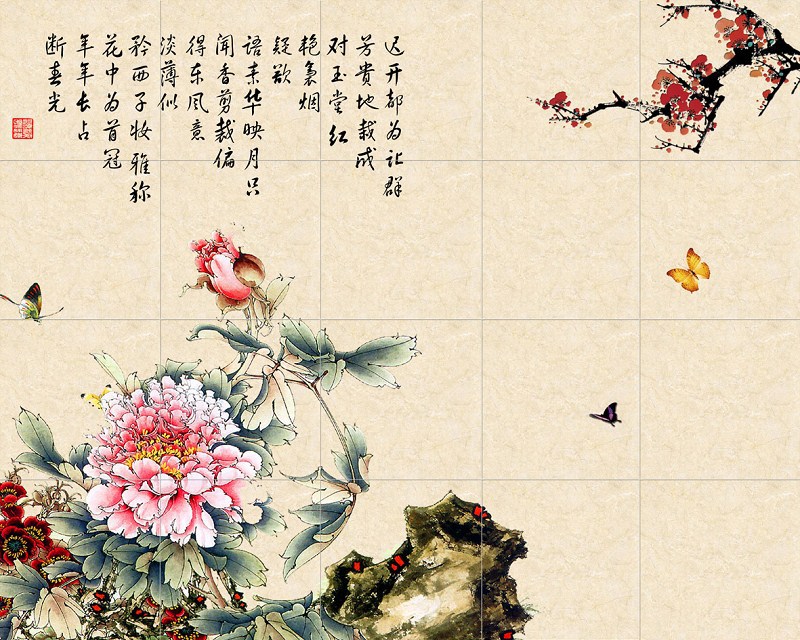 迟开都为让群
芳贵地栽成
对玉堂红
艳裊烟
疑欲
语素华映月只
闻香剪裁偏
得东风意
淡薄似
矜西子妆雅称
花中为首冠
年年长占
断春光